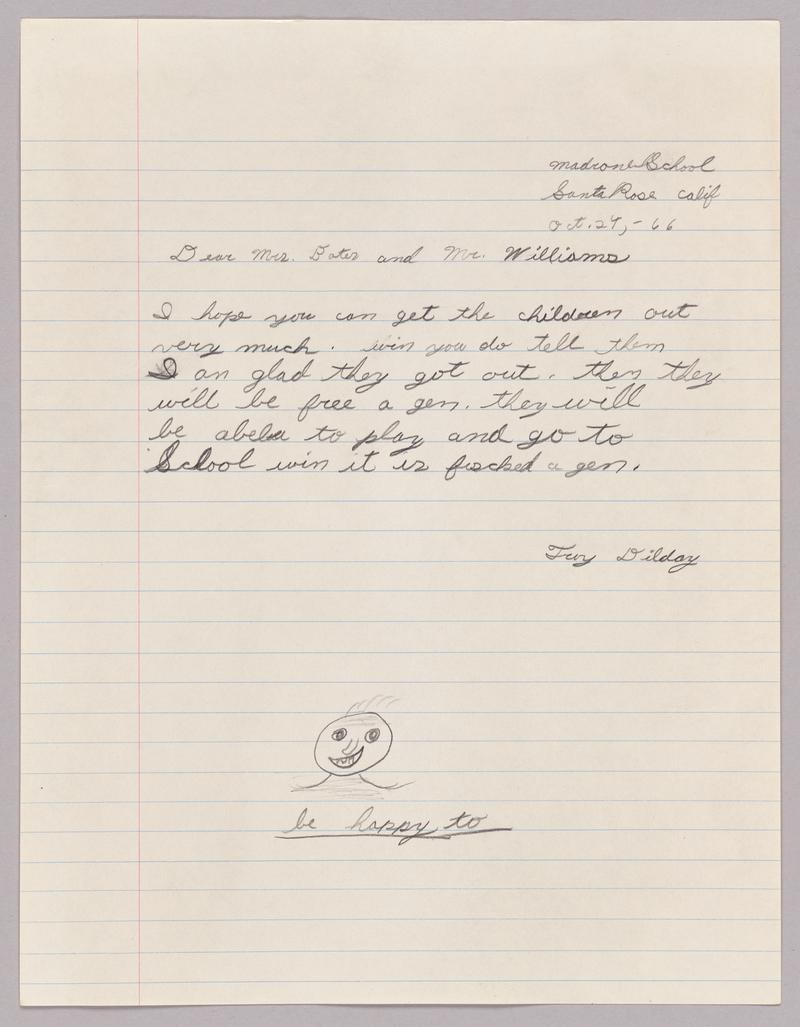 madrone School
Santa Rose calif
oct. 24, - 66
Dear Mrs. Bates and Mr. Williams
I hope you can get the children out
very much. win you do tell them
I an glad they got out. then they
will be free a gen. they will
be abela to play and go to
School win it is fiscked a gen.
Dilday
be happy to